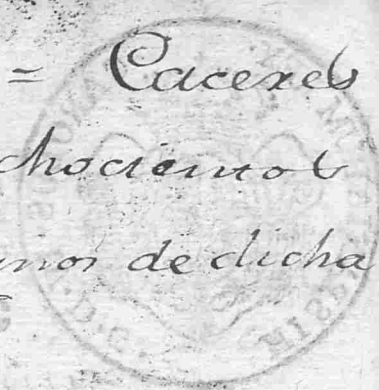 = Caceres
chocientos
nos de dicha